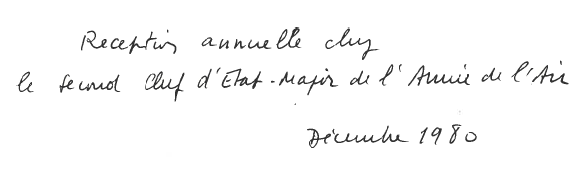 Reception annuelle chez
le second Chef d'Etat-Major de l'Armée de l'Air
Décembre 1980